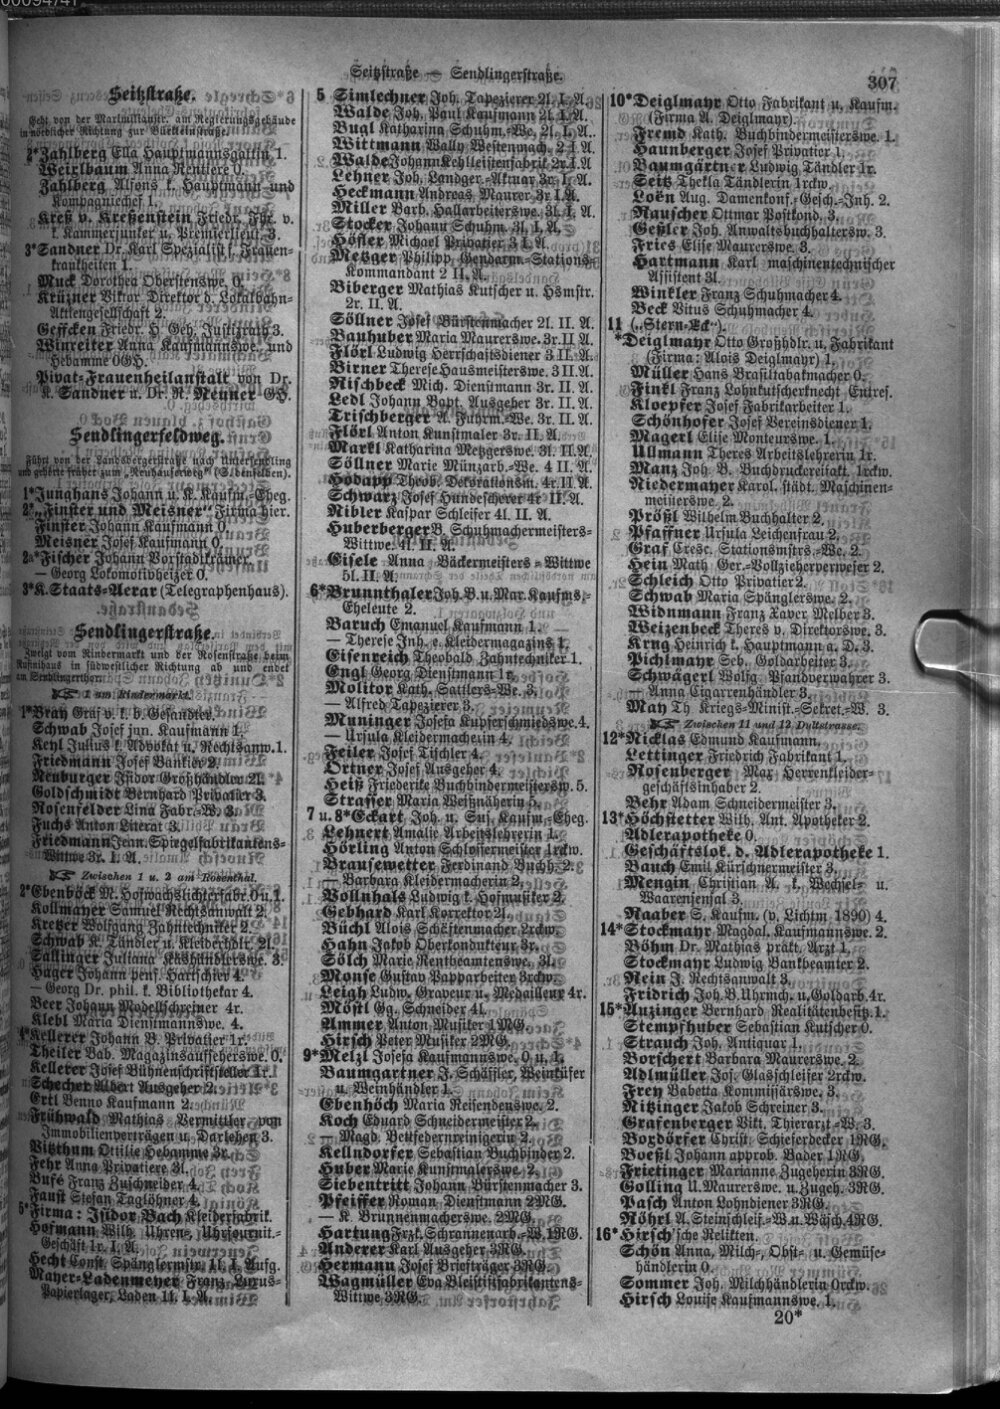 Seitzstraße — Sendlingerstraße.
307
Seitzstraße.
Geht von der Maximilianstr. am Regierungsgebäude
in nördlicher Richtung zur Bürkleinstraße.
2*Zahlberg Ella Hauptmannsgattin 1.
Weixlbaum Anna Rentiere 0.
Zahlberg Alfons k. Hauptmann und
Kompagniechef 1.
Kreß v. Kreßenstein Friedr. Fhr. v.
k. Kammerjunker u. Premierlieut. 3.
3*Sandner Dr. Karl Spezialist f. Frauen-
krankheiten 1.
Muck Dorothea Oberstenswe. 0.
Krüzner Viktor Direktor d. Lokalbahn-
Aktiengesellschaft 2.
Geffcken Friedr. H. Geh. Justizrath 3.
Winreiter Anna Kaufmannswe. und
Hebamme 0GH.
Pivat-Frauenheilanstalt von Dr.
K. Sandner u. Dr. R. Renner GH.
Sendlingerfeldweg.
Führt von der Landsbergerstraße nach Untersendling
und gehörte früher zum „Neuhauserweg" (S. denselben).
1*Junghans Johann u. K. Kaufm.-Eheg.
2*„Finster und Meisner" Firma hier.
Finster Johann Kaufmann 0.
Meisner Josef Kaufmann 0.
2a*Fischer Johann Vorstadtkrämer
— Georg Lokomotivheizer 0.
3*K. Staats-Aerar (Telegraphenhaus).
Sendlingerstraße.
Zweigt vom Rindermarkt und der Rosenstraße beim
Ruffinihaus in südwestlicher Richtung ab und endet
am Sendlingerthor.
1 am Rindermarkt.
1*Bray Graf v. k. b. Gesandter.
Schwab Josef jun. Kaufmann 1.
Keyl Julius k. Advokat u. Rechtsanw. 1.
Friedmann Josef Bankier 2.
Neuburger Isidor Großhändler 2l.
Goldschmidt Bernhard Privatier 3.
Rosenfelder Lina Fabr.-W. 3.
Fuchs Anton Literat 3.
Friedmann Jenn. Spiegelfabrikantens-
Wittwe 3r. I. A.
Zwischen 1 u. 2 am Rosenthal.
2*Ebenböck M. Hofwachslichterfabr. 0 u. 1.
Kollmayer Samuel Rechtsanwalt 2.
Kreßer Wolfgang Zahntechniker 2.
Schwab K. Tändler u. Kleiderhdlr. 2l.
Sallinger Juliana Käshändlerswe. 3.
Hager Johann pens. Hartschier 4.
— Georg Dr. phil. k. Bibliothekar 4.
Beer Johann Modellschreiner 4r.
Klebl Maria Dienstmannswe. 4.
4*Kellerer Johann B. Privatier 1r.
Theiler Bab. Magazinsaufseherswe. 0.
Kellerer Josef Bühnenschriftsteller 1r.
Schecher Albert Ausgeher 2.
Ertl Benno Kaufmann 2.
Frühwald Mathias Vermittler von
Immobilienverträgen u. Darlehen 3.
Vitzthum Ottilie Hebamme 3r.
Fehr Anna Privatiere 3l.
Bufe Franz Zuschneider 4.
Faust Stefan Taglöhner 4.
5*Firma: Isidor Bach Kleiderfabrik.
Hofmann Wilh. Uhren-, Uhrfournit.-
Geschäft 1r. I. A.
Hecht Const. Spänglermstr. 1l. I. Aufg.
Mayer-Ladenmeyer Franz Luxus-
Papierlager, Laden 1l. I. A.
5 Simlechner Joh. Tapezierer 2l. I. A.
Walde Joh. Paul Kaufmann 2l. I. A.
Bugl Katharina Schuhm.-We. 2l. I. A.
Wittmann Wally Westenmach. 2 I. A.
Walde Johann Kehlleistenfabrik 2r. I. A
Lehner Joh. Landger.-Aktuar 3r. I. A.
Heckmann Andreas Maurer 3r I. A.
Miller Barb. Hallarbeiterswe. 3l. I. A.
Stocker Johann Schuhm. 3l. I. A.
Höfler Michael Privatier 3 I. A.
Metzger Philipp Gendarm.-Stations-
Kommandant 2 II. A.
Biberger Mathias Kutscher u. Hsmstr.
2r. II. A.
Söllner Josef Bürstenmacher 2l. II. A.
Bauhuber Maria Maurerswe. 3r. II A.
Flörl Ludwig Herrschaftsdiener 3 II. A.
Birner Therese Hausmeisterswe. 3 II. A.
Rischbeck Mich. Dienstmann 3r. II. A.
Ledl Johann Bapt. Ausgeher 3r. II. A.
Trischberger A. Fuhrm.-We. 3r. II. A.
Flörl Anton Kunstmaler 3r. II. A.
Markl Katharina Metzgerswe. 3l. II. A.
Söllner Marie Münzarb.-We. 4 II. A.
Hodapp Theod. Dekorationsm. 4r. II. A.
Schwarz Josef Hundescherer 4r II. A.
Ribler Kaspar Schleifer 4l. II. A.
Huberberger B. Schuhmachermeisters-
Wittwe. 4l. II. A.
Gisele Anna Bäckermeisters-Wittwe
5l. II. A.
6*Brunnthaler Joh. B. u. Mar. Kaufms.-
Eheleute 2.
Baruch Emanuel Kaufmann 1.
— Therese Inh. e. Kleidermagazins 1.
Eisenreich Theobald Zahntechniker 1.
Engl Georg Dienstmann 1r.
Molitor Kath. Sattlers-We. 3.
— Alfred Tapezierer 3.
Muninger Josefa Kupferschmiedswe. 4.
— Ursula Kleidermacherin 4.
Feiler Josef Tischler 4.
Ortner Josef Ausgeher 4.
Heiß Friederike Buchbindermeistersw. 5.
Strasser Maria Weißnäherin 5.
7 u. 8*Eckart Joh. u. Sus. Kaufm.-Eheg.
Lehnert Amalie Arbeitslehrerin 1.
Hörling Anton Schlossermeister 1rckw.
Brausewetter Ferdinand Buchh. 2.
— Barbara Kleidermacherin 2.
Vollnhals Ludwig k. Hofmusiker 2.
Gebhard Karl Korrektor 2l.
Büchl Alois Schäftenmacher 2rckw.
Hahn Jakob Oberkondukteur 3r.
Sölch Marie Rentbeamtenswe. 3l.
Monse Gustav Papparbeiter 3rckw.
Leigh Ludw. Graveur u. Medailleur 4r.
Möstl Gg. Schneider 4l.
Ammer Anton Musiker 1MG.
Hirsch Peter Musiker 2MG.
9*Melzl Josefa Kaufmannswe. 0 u. 1.
Baumgartner J. Schäffler, Weinküfer
u. Weinhändler 1.
Ebenhöch Maria Reisendenswe. 2.
Koch Eduard Schneidermeister 2.
— Magd. Bettfedernreinigerin 2.
Kellndorfer Sebastian Buchbinder 2.
Huber Marie Kunstmalerswe. 2.
Siebentritt Johann Bürstenmacher 3.
Pfeiffer Roman Dienstmann 2MG.
— K. Brunnenmacherswe. 2MG.
Hartung Frzk. Schrannenarb.-W. 1RG.
Anderer Karl Ausgeher 3RG.
Hermann Josef Briefträger 3RG.
Wagmüller Eva Bleistiftfabrikantens-
Wittwe 3RG.
10*Deiglmayr Otto Fabrikant u. Kaufm.
(Firma A. Deiglmayr).
Fremd Kath. Buchbindermeisterswe. 1.
Haunberger Josef Privatier 1.
Baumgärtner Ludwig Tändler 1r.
Seitz Thekla Tändlerin 1rckw.
Loën Aug. Damenkonf.-Gesch.-Inh. 2.
Rauscher Ottmar Postkond. 3.
Geßler Joh. Anwaltsbuchhaltersw. 3.
Fries Elise Maurerswe. 3.
Hartmann Karl maschinentechnischer
Assistent 3l.
Winkler Franz Schuhmacher 4.
Beck Vitus Schuhmacher 4.
11 („Stern-Eck").
*Deiglmayr Otto Großhdlr. u. Fabrikant
(Firma: Alois Deiglmayr) 1.
Müller Hans Brasiltabakmacher 0.
Finkl Franz Lohnkutscherknecht Entres.
Kloepfer Josef Fabrikarbeiter 1.
Schönhofer Josef Vereinsdiener 1.
Magerl Elise Monteurswe. 1.
Ullmann Theres Arbeitslehrerin 1r.
Manz Joh. B. Buchdruckereifakt. 1rckw.
Niedermayer Karol. städt. Maschinen-
meisterswe. 2.
Prößl Wilhelm Buchhalter 2.
Pfaffner Ursula Leichenfrau 2.
Graf Cresc. Stationsmstrs.-We. 2.
Hein Math Ger.-Vollzieherverweser 2.
Schleich Otto Privatier 2.
Schwab Maria Spänglerswe. 2.
Widnmann Franz Xaver Melber 3.
Weizenbeck Theres v. Direktorswe. 3.
Krug Heinrich k. Hauptmann a. D. 3.
Pichlmayr Seb. Goldarbeiter 3.
Schwägerl Wolfg. Pfandverwahrer 3.
— Anna Cigarrenhändler 3.
May Th. Kriegs-Minist.-Sekret.-W. 3.
Zwischen 11 und 12 Dultstrasse.
12*Nicklas Edmund Kaufmann.
Lettinger Friedrich Fabrikant 1.
Rosenberger Max Herrenkleider-
geschäftsinhaber 2.
Behr Adam Schneidermeister 3.
13*Höchstetter Wilh. Ant. Apotheker 2.
Adlerapotheke 0.
Geschäftslok. d. Adlerapotheke 1.
Bauch Emil Kürschnermeister 3.
Mengin Christian A. k. Wechsel- u.
Waarensensal 3.
Raaber S. Kaufm. (v. Lichtm. 1890) 4.
14*Stockmayr Magdal. Kaufmannswe. 2.
Böhm Dr. Mathias prakt. Arzt 1.
Stockmayr Ludwig Bankbeamter 2.
Rein J. Rechtsanwalt 3.
Fridrich Joh. B. Uhrmch. u. Goldarb. 4r.
15*Anzinger Bernhard Realitätenbesitz. 1.
Stempfhuber Sebastian Kutscher 0.
Strauch Joh. Antiquar 1.
Borschert Barbara Maurerswe. 2.
Adlmüller Jos. Glasschleifer 2rckw.
Frey Babetta Kommissärswe. 3.
Ritzinger Jakob Schreiner 3.
Grafenberger Vikt. Thierarzt-W. 3.
Boxdörfer Christ. Schieferdecker 1RG.
Boeßl Johann approb. Bader 1RG.
Frietinger Marianne Zugeherin 3RG.
Golling U. Maurerswe. u. Zugeh. 3RG.
Pasch Anton Lohndiener 3RG.
Röhrl A. Steinschleif.-W. u. Wäsch. 4RG.
16*Hirsch'sche Relikten.
Schön Anna, Milch-, Obst- u. Gemüse-
händlerin 0.
Sommer Joh. Milchhändlerin 0rckw.
Hirsch Louise Kaufmannswe. 1.
20*